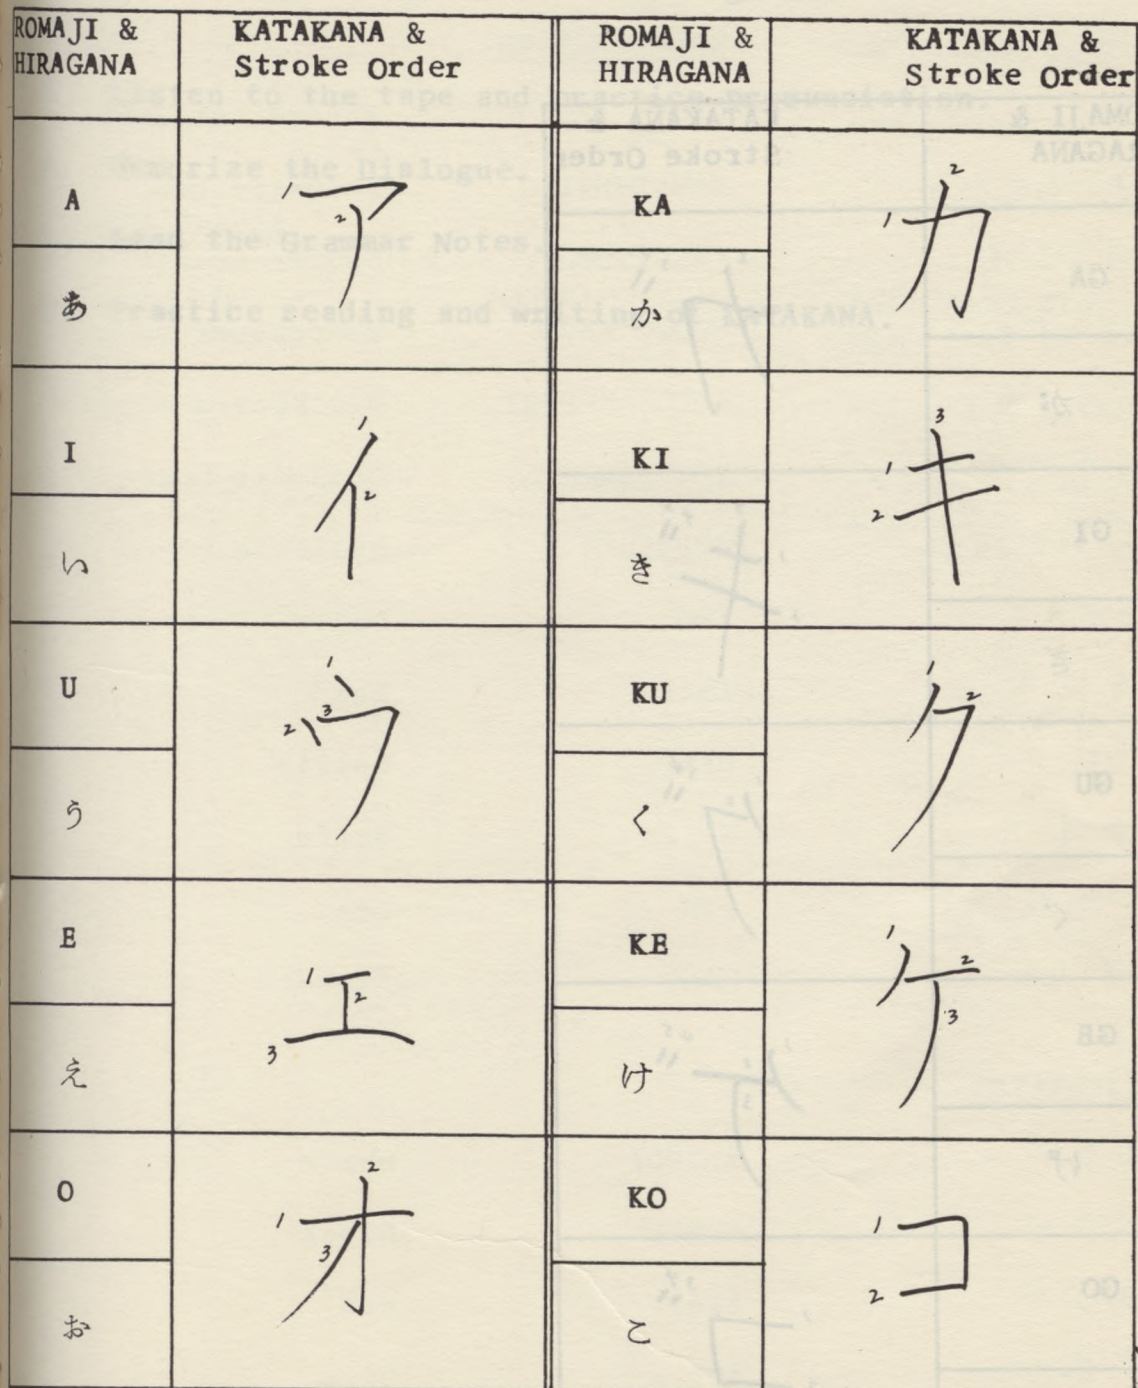 ROMAJI &
HIRAGANA
KATAKANA &
Stroke Order
ROMAJI &
HIRAGANA
KATAKANA &
Stroke Order
A
あ
1 2
ア
KA
か
1 2
カ
I
い
1 2
イ
KI
き
1 2 3
キ
U
う
1 2 3
ウ
KU
く
1 2
ク
E
え
1 2 3
エ
KE
け
1 2 3
ケ
O
お
1 2 3
オ
KO
こ
1 2
コ